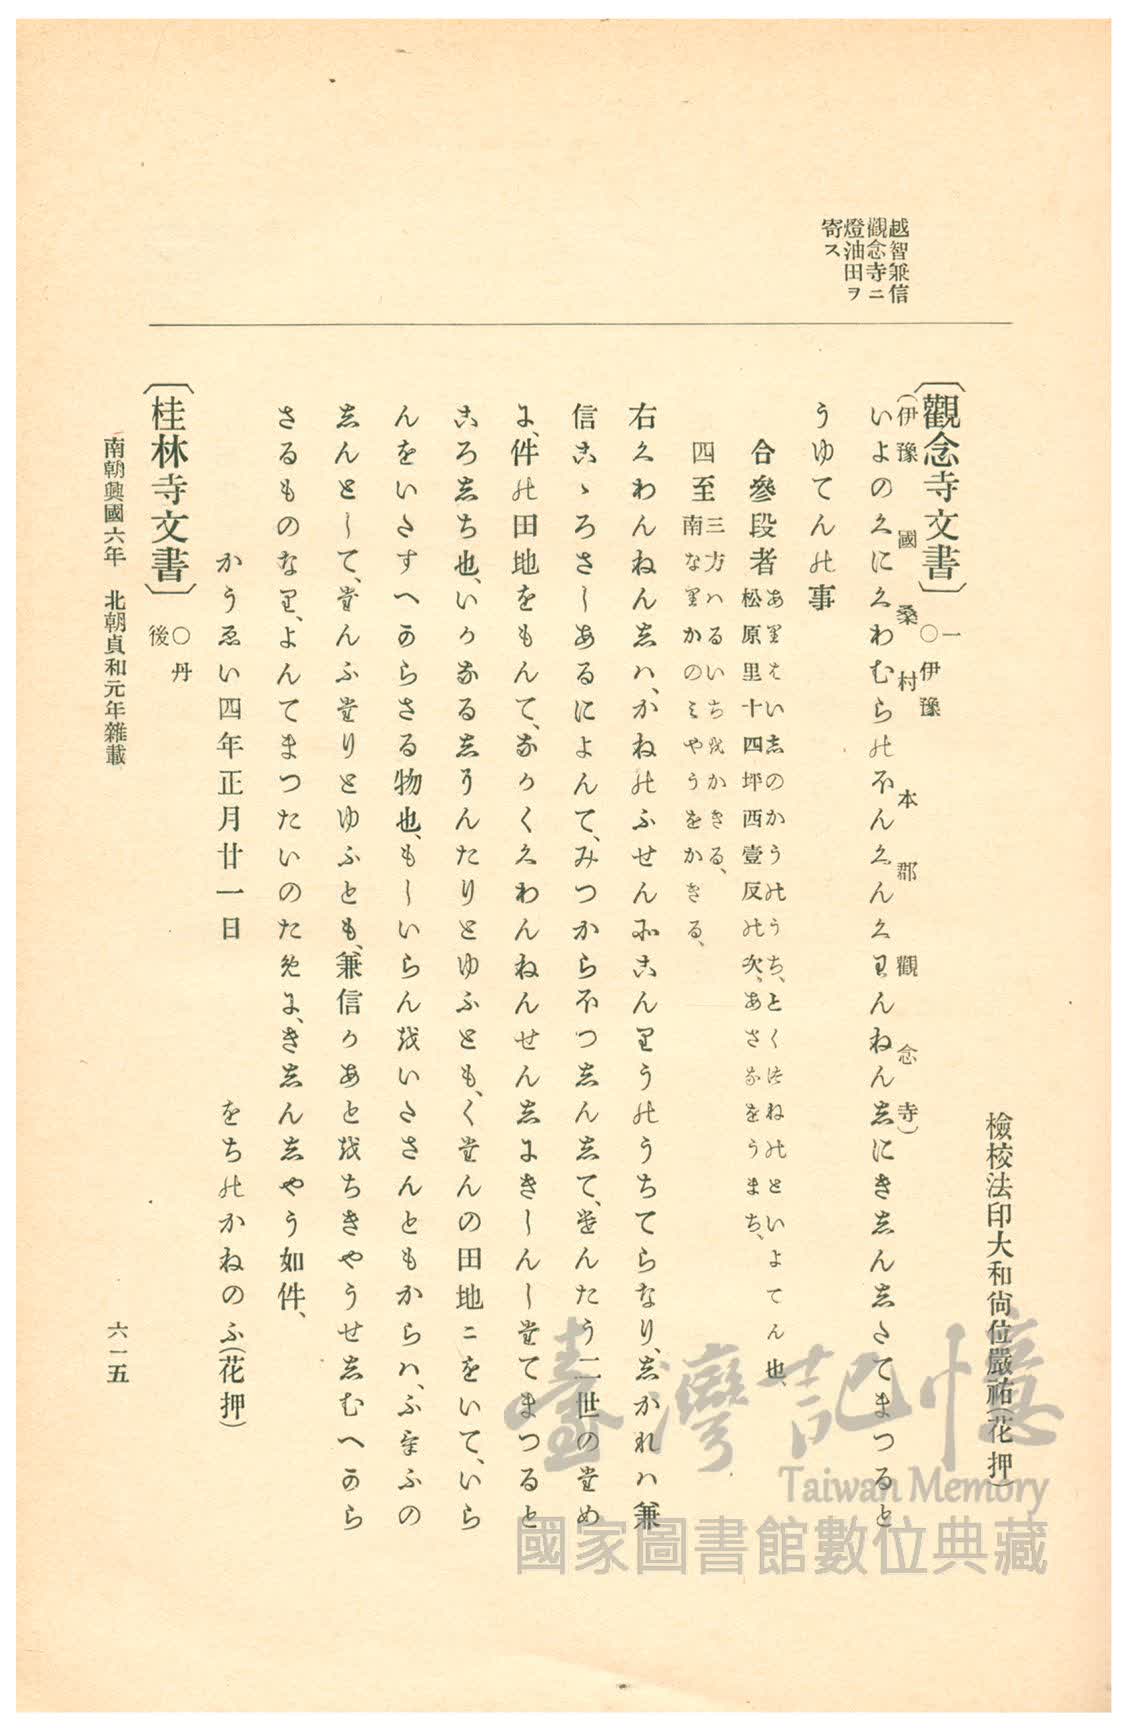 越智兼信
觀念寺ニ
燈油田ヲ
寄ス
檢校法印大和尙位嚴祐(花押)
〔觀念寺文書〕
一
○伊豫
(伊豫國桑村本郡觀念寺)
いよのくにくわむらのほんくんくわんねんしにきしんしたてまつると
うゆてんの事
合參段者
ありところハい志のかうのうち、とくつねのといよてん也、
松原里十四坪西壹反の次、あさなをうまち、
四至
三方ハるいちをかきる、
南なりかのミやうをかきる、
右くわんねんしハ、かねのふせんそこんりうのうちてらなり、しかれハ兼
信こゝろさしあるによんて、みつからほつしんして、たんたう二世のため
に、件の田地をもんて、なかくくわんねんせんしにきしんしたてまつると
ころしち也、いかなるしうんたりとゆふとも、くたんの田地ニをいて、いら
んをいたすへからさる物也、もしいらんをいたさんともからハ、ふけふの
しんとして、たんふたりとゆふとも、兼信かあとをちきやうせしむへから
さるものなり、よんてまつたいのために、きしんしやう如件、
かうゑい四年正月廿一日
をちのかねのふ(花押)
〔桂林寺文書〕
○丹
後
南朝興國六年 北朝貞和元年雜載
六一五
臺灣記憶
Taiwan Memory
國家圖書館數位典藏